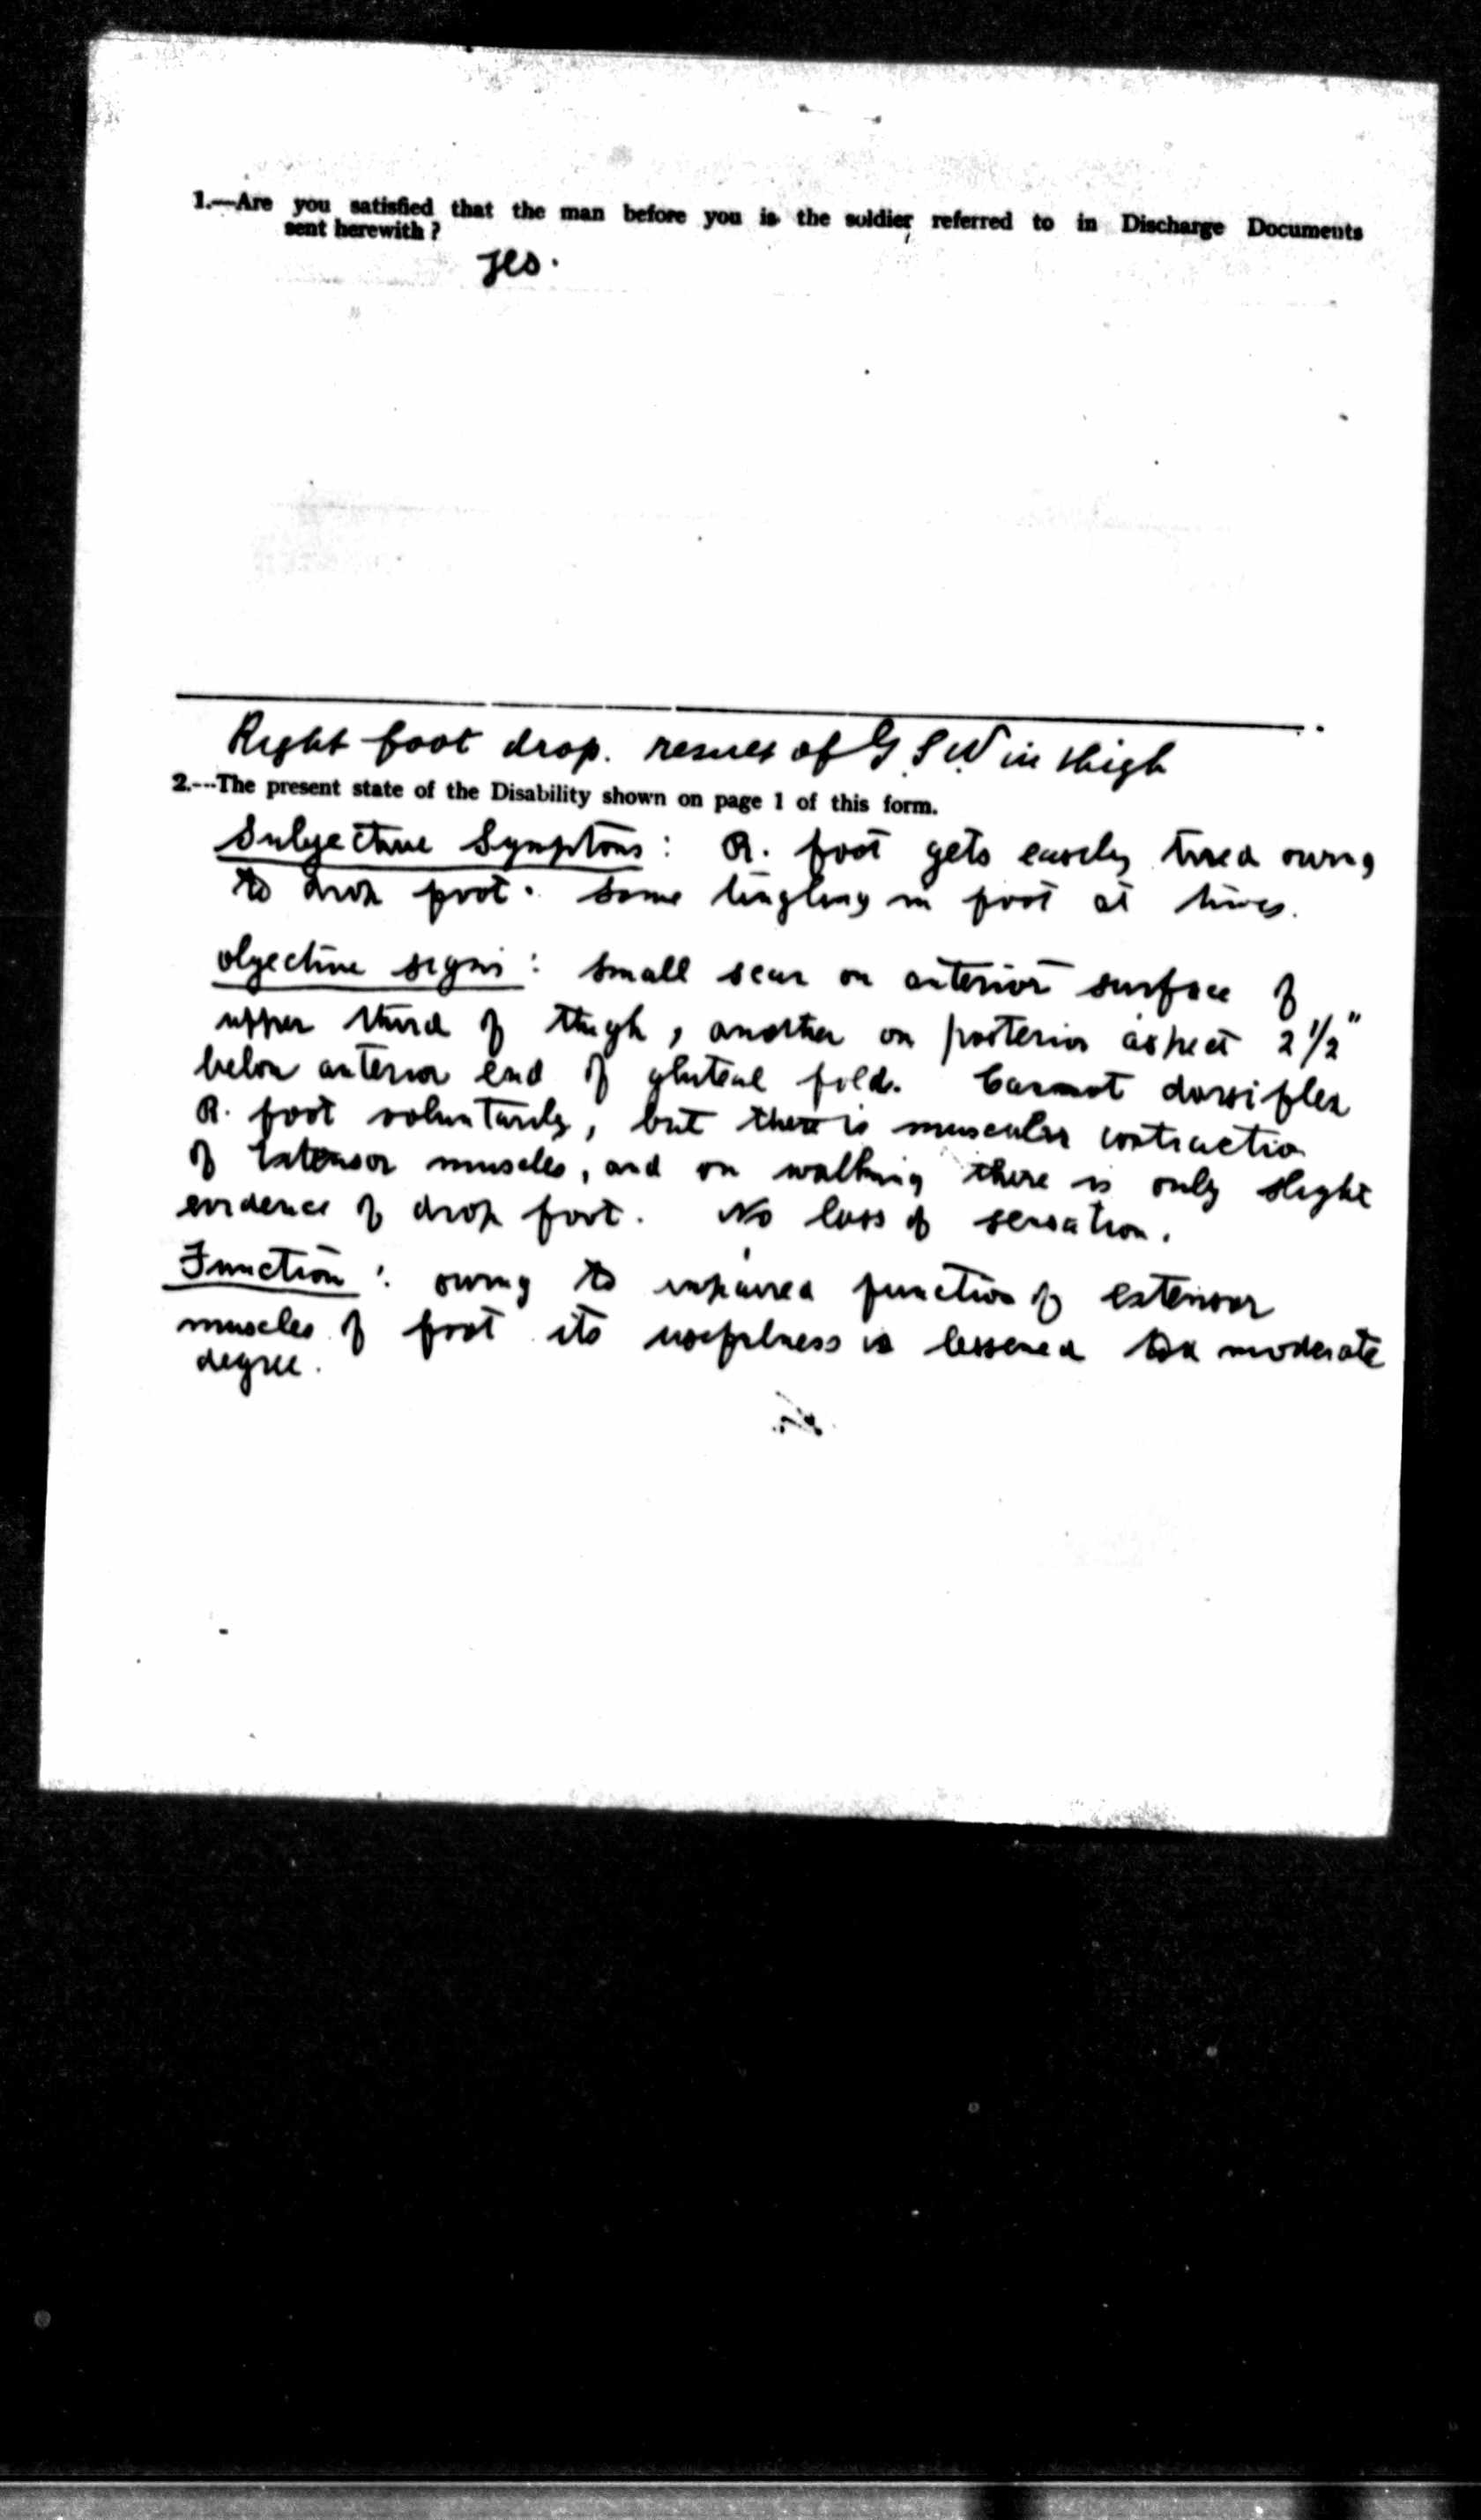 1.—Are you satisfied that the man before you is the soldier referred to in Discharge Documents
sent herewith?
yes.
Right foot drop. result of G.S.W in thigh
2.---The present state of the Disability shown on page 1 of this form.
Subjective Symptoms: R. foot gets easily tired owing
to drop foot. Some tingling in foot at times.
Objective signs: Small scar on anterior surface of
upper third of thigh, another on posterior aspect 2 1/2"
below anterior end of gluteal fold. Cannot dorsiflex
R. foot voluntarily, but there is muscular contraction
of extensor muscles, and on walking there is only slight
evidence of drop foot. No loss of sensation.
Function: owing to impaired function of extensor
muscles of foot its usefulness is lessened to a moderate
degree.